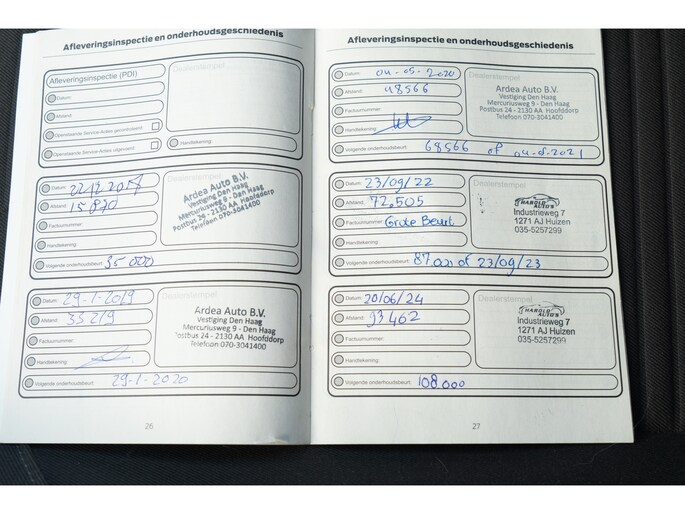 Afleveringsinspectie en onderhoudsgeschiedenis
Afleveringsinspectie (PDI)
Dealerstempel
Datum:
Afstand:
Openstaande Service-Acties gecontroleerd
Openstaande Service-Acties uitgevoerd
Handtekening:
Datum:
Afstand: 15 870
Factuurnummer:
Handtekening:
Volgende onderhoudsbeurt: 35 000
Dealerstempel
Ardea Auto B.V.
Vestiging Den Haag
Mercuriusweg 9 - Den Haag
Postbus 24 - 2130 AA Hoofddorp
Telefoon 070-3041400
Datum: 29-1-2019
Afstand: 33 219
Factuurnummer:
Handtekening:
Volgende onderhoudsbeurt: 29-1-2020
Ardea Auto B.V.
Vestiging Den Haag
Mercuriusweg 9 - Den Haag
Postbus 24 - 2130 AA Hoofddorp
Telefoon 070-3041400
26
Afleveringsinspectie en onderhoudsgeschiedenis
Datum: 04-05-2020
Afstand: 48566
Factuurnummer:
Handtekening:
Volgende onderhoudsbeurt: 68566 of 04-05-2021
Dealerstempel
Ardea Auto B.V.
Vestiging Den Haag
Mercuriusweg 9 - Den Haag
Postbus 24 - 2130 AA Hoofddorp
Telefoon 070-3041400
Datum: 23/09/22
Afstand: 72,505
Factuurnummer: Grote Beurt
Handtekening:
Volgende onderhoudsbeurt: 87.000 of 23/09/23
Dealerstempel
HAROLD AUTO'S
Industrieweg 7
1271 AJ Huizen
035-5257299
Datum: 20/06/24
Afstand: 93462
Factuurnummer:
Handtekening:
Volgende onderhoudsbeurt: 108.000
Dealerstempel
HAROLD AUTO'S
Industrieweg 7
1271 AJ Huizen
035-5257299
27